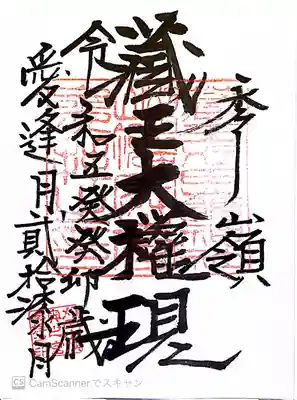 参嶺
藏王大權現
令和五癸癸卯歳
愛逢月貳拾漆月
CamScannerでスキャン